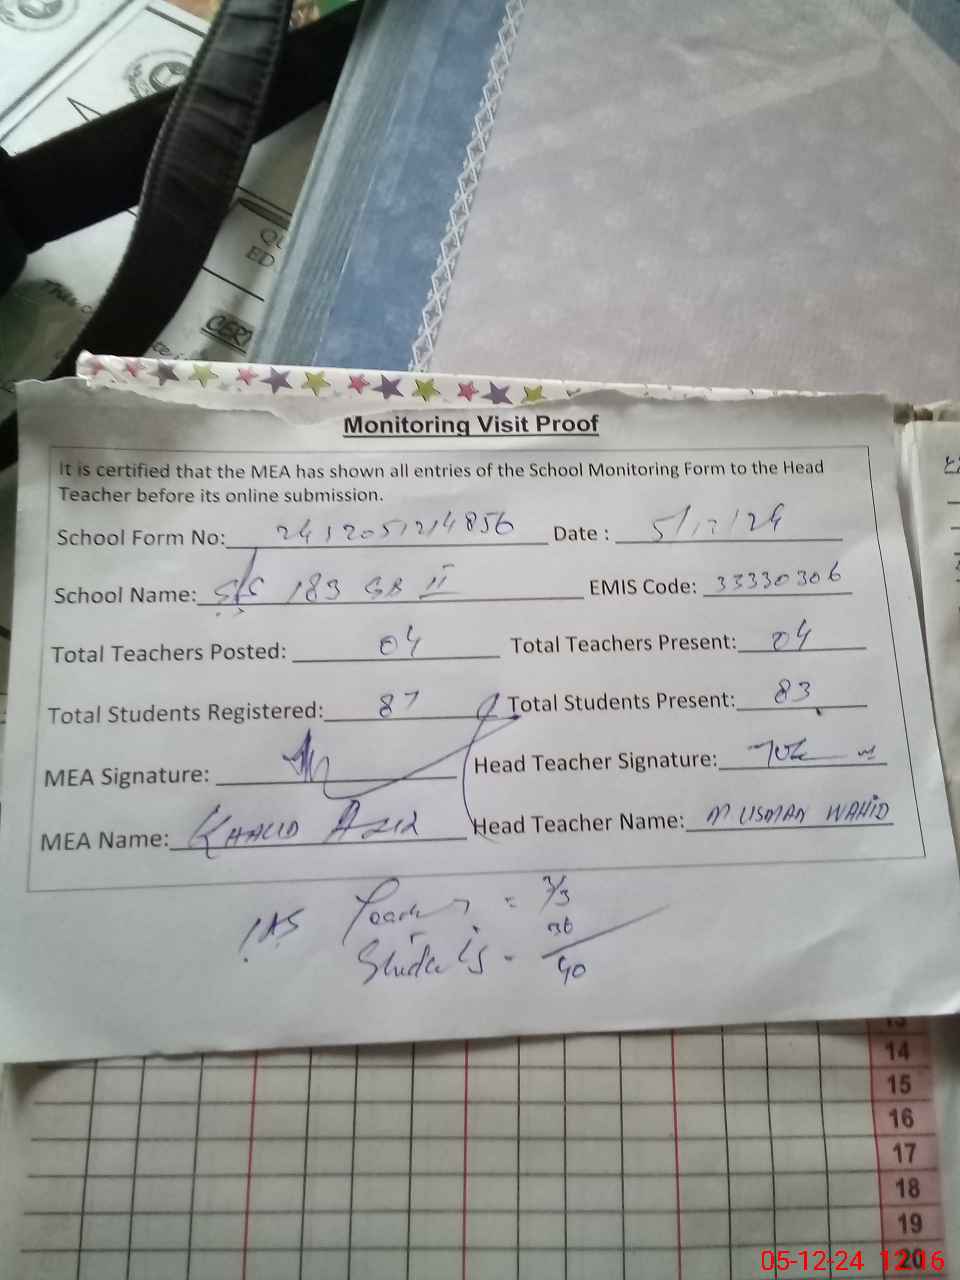 QU
ED
This c
CER
Monitoring Visit Proof
It is certified that the MEA has shown all entries of the School Monitoring Form to the Head
Teacher before its online submission.
School Form No: 241205124856 Date : 5/12/24
School Name: S/S 183 GB II EMIS Code: 33330306
Total Teachers Posted: 04 Total Teachers Present: 04
Total Students Registered: 87 Total Students Present: 83
MEA Signature: Head Teacher Signature:
MEA Name: KHALID AZIZ Head Teacher Name: M USMAN WAHID
Teachers = 3/3
Students - 36/40
14
15
16
17
18
19
20
05-12-24 12:16